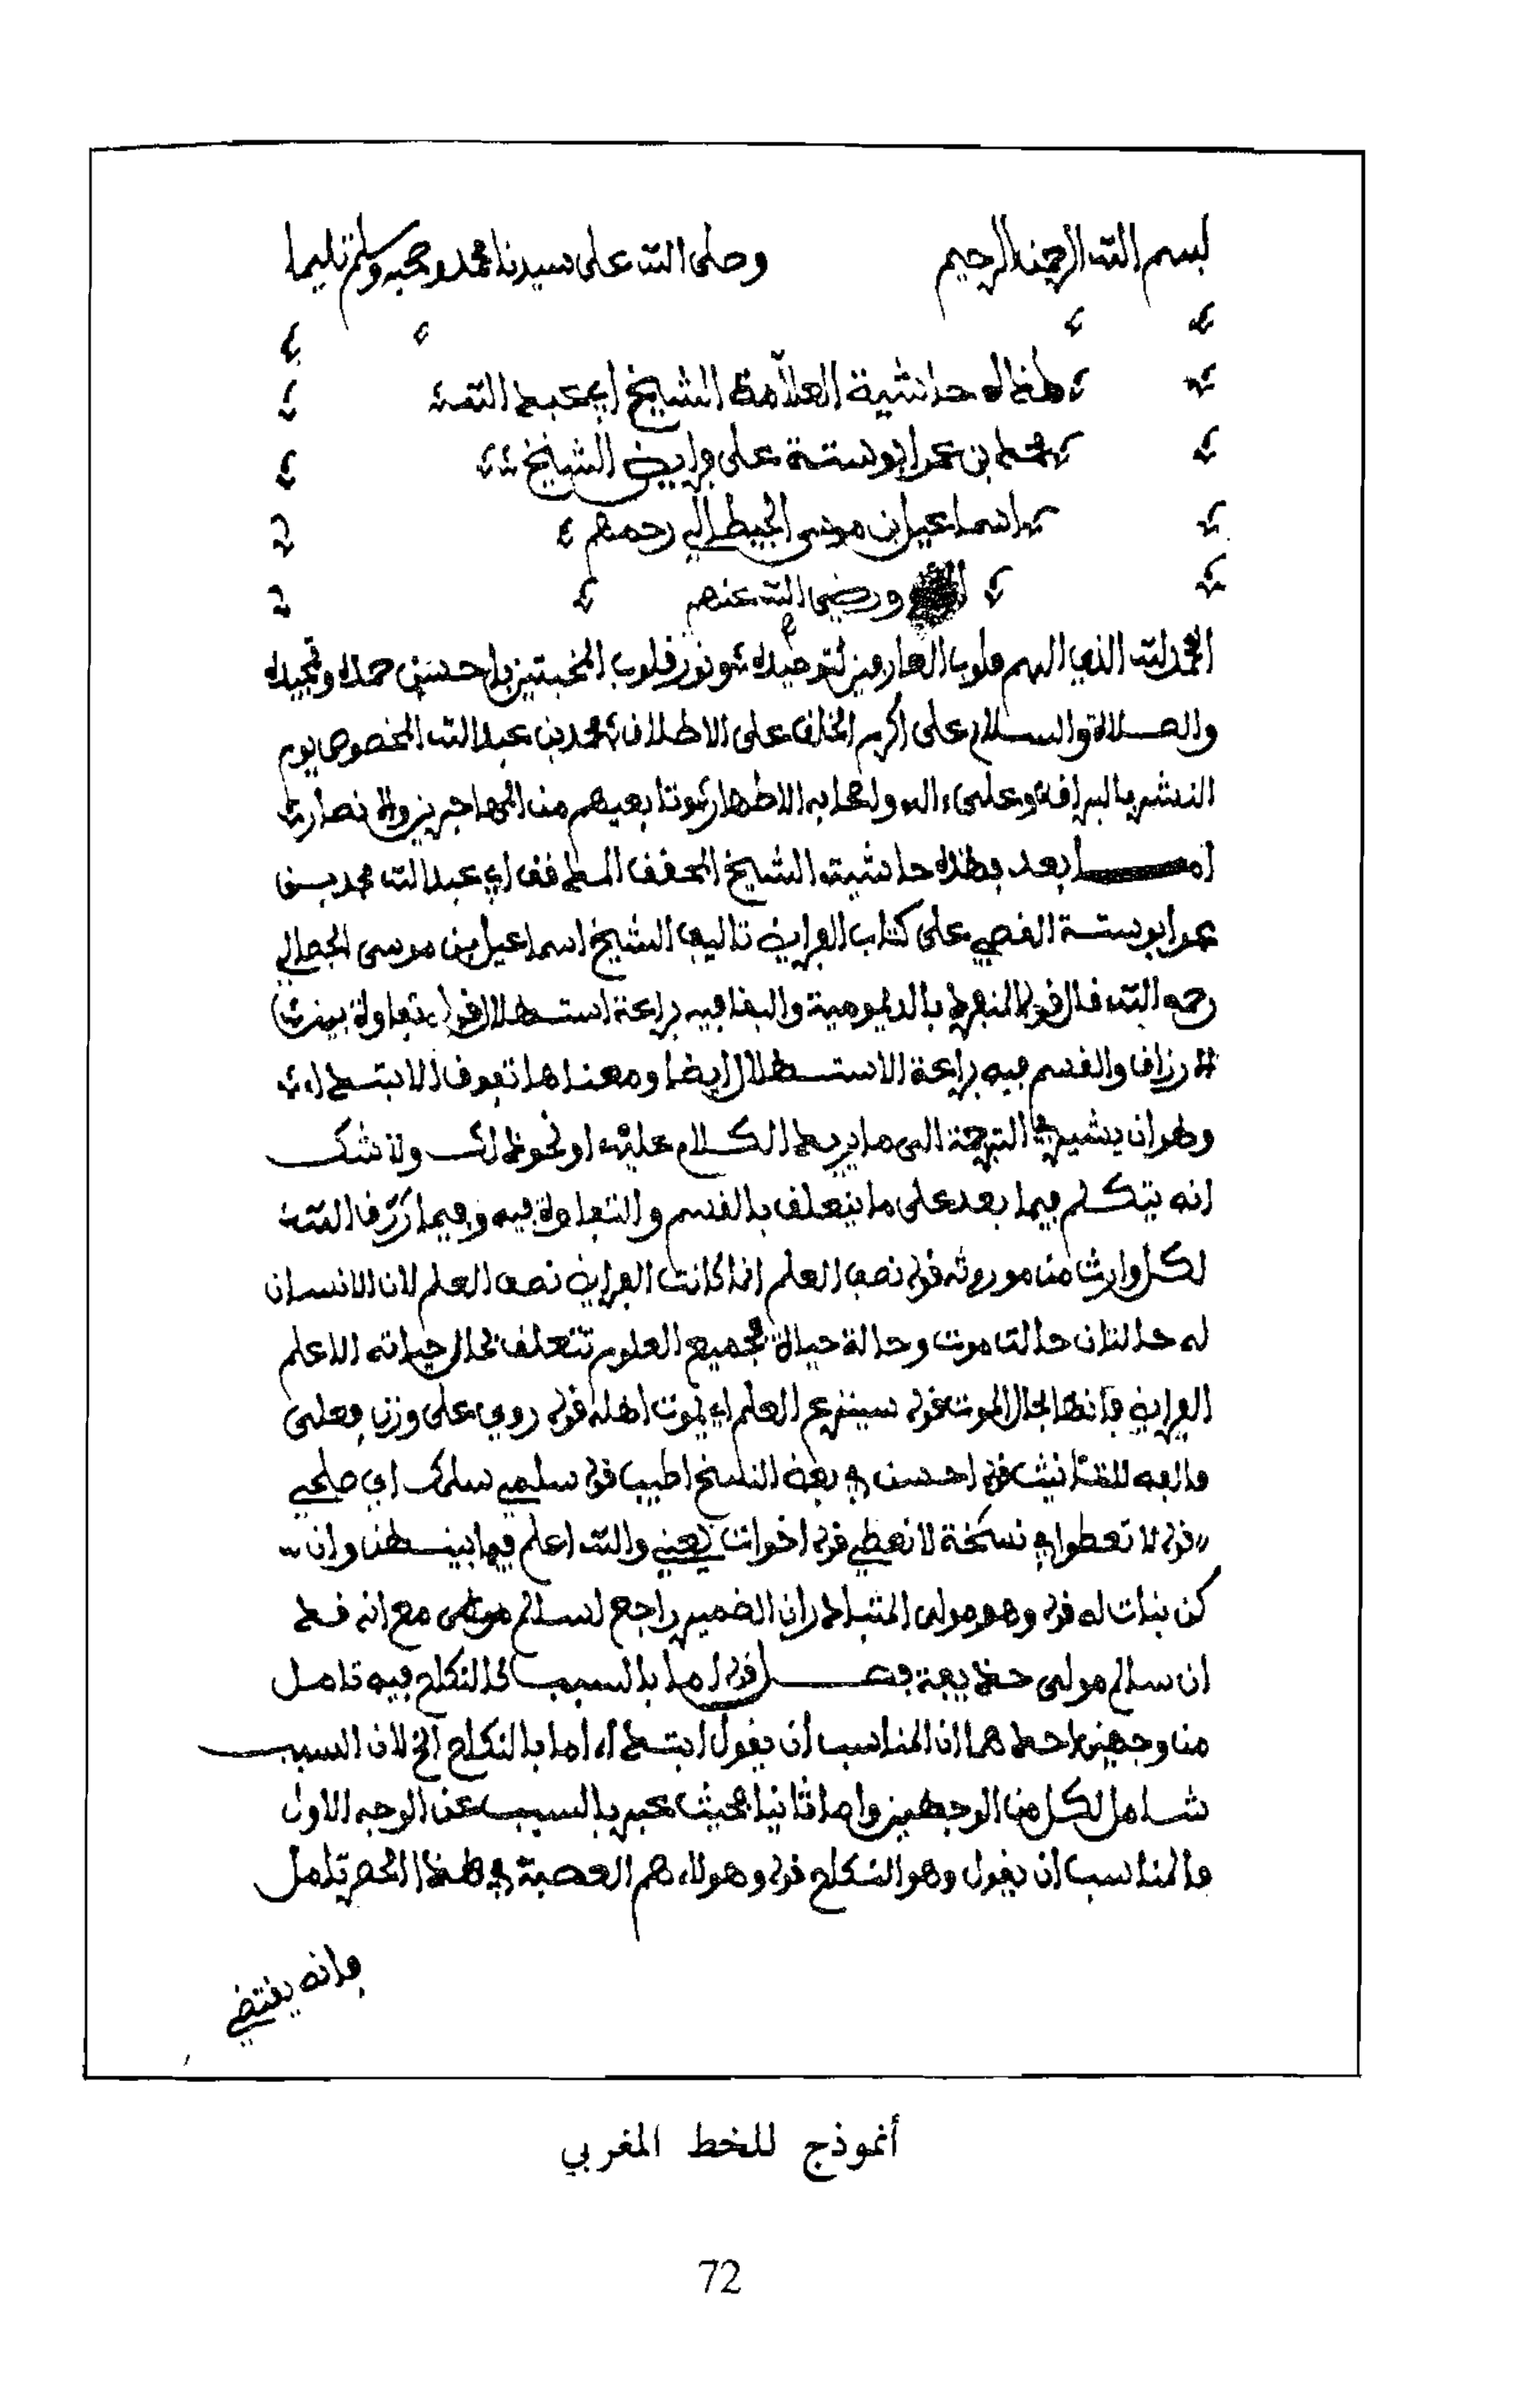 بسم الله الرحمن الرحيم وصلى الله على سيدنا محمد وصحبه وسلم تسليما
هذه حاشية العلامة الشيخ ابي عبد الله
محمد بن عمر ابو ستة على فرايض الشيخ
اسماعيل بن موسى الجيطالي رحمهم
الله ورضي الله عنهم
الحمد لله الذي الهم قلوب العارفين لتوحيده ونور قلوب المخبتين باحسن حمده وتمجيده
والصلاة والسلام على اكرم الخلق على الاطلاق محمد بن عبد الله المخصوص يوم
النشر بالبراق وعلى ءاله واصحابه الاطهار وتابعيهم من المهاجرين والانصار
امــا بعد فهذه حاشية الشيخ المحقق المدقق ابي عبد الله محمد بن
عمر ابو ستة القصبي على كتاب الفرايض تاليف الشيخ اسماعيل بن موسى الجطالي
رحمه الله قال قوله المنفرد بالديمومية والبقا فيه براعة استهلال قوله تفاوة بين
الارزاق والقسم فيه براعة الاستهلال ايضا ومعناها تفوق الابتداء
وهو ان يشير في الترجمة الى ما يريد الكلام عليه او نحو ذلك ولا شك
انه يتكلم فيما بعد على ما يتعلق بالقسم والتفاوة فيه وفيما رزق الله
لكل وارث من موروثه قوله نصف العلم انما كانت الفرايض نصف العلم لان الانسان
له حالتان حالت موت وحالة حياة فجميع العلوم تتعلق بحال حياته الا علم
الفرايض فانها بحال الموت قوله سينزع العلم اي بموت اهله قوله روى على وزن فعلى
والفه للتانيث قوله احسن في بعض النسخ اطيب قوله سليمى سلمك اي صلحي
قوله لا تعطوا في نسخة لا نعطي قوله اخوات يعني والله اعلم فيما بينهن وان
كن بنات له قوله وهو مولى المتبادر ان الضمير راجع لسالم مولى مع انه قد
ان سالم مولى حذيفة فصل قوله اما بالسبب كالنكاح فيه تامل
من وجهين احدهما ان المناسب ان يقول ابتداء اما بالنكاح الخ لان السبب
شامل لكل من الوجهين واما ثانيا فحيث عبر بالسبب عن الوجه الاول
فالمناسب ان يقول وهو النكاح قوله وهولاء هم العصبة في هذا الحصر تامل
فانه يقتضي
أنموذج للخط المغربي
72